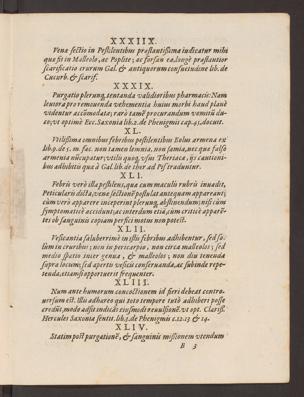 XXXIIX.
Venæ sectio in Pestilentibus præstantissima iudicatur mihi
quæ fit in Malleolo, ac Poplite; ac forsan ea longè præstantior
scarificatio crurum Gal. & antiquorum consuetudine lib. de
Cucurb. & scarif.
XXXIX.
Purgatio plerunq; tentanda validioribus pharmacis: Nam
leuiora pro remouenda vehementia huius morbi haud planè
videntur accõmodata; rarò tamẽ procurandum vomitũ du-
co, vt optimè Ex. Saxonia lib. 2. de Phenigmis cap. 45. docuit.
XL.
Vtilissima omnibus febribus pestilentibus Bolus armena ex
lib. 9. de s. m. fac. non tamen lemnia, non samia, nec quæ falso
armenia nũcupatur; vtilis quoq; vsus Theriacæ, ijs cautioni-
bus adhibitis quæ à Gal. lib. de ther. ad Pis. traduntur.
XLI.
Febris verò illa pestilens, quæ cum maculis rubris inuadit,
Peticularis dicta, venæ sectionẽ postulat antequam appareant;
cùm verò apparere inceperint plerunq; abstinendum; nisi cùm
symptomaticè accidunt; ac interdum etiã, cùm criticè apparẽ-
tes ob sanguinis copiam perfici motus non potest.
XLII.
Vesicantia saluberrimè in istis febribus adhibentur, sed so-
lùm in cruribus; non in pericarpio, non circa malleolos; sed
medio spatio inter genua, & malleolos; non diu tenenda
supra locum; sed apertis vesicis conseruanda, ac subinde repe-
tenda, etiamsi oportuerit frequenter.
XLIII.
Num ante humorum concoctionem id fieri debeat contro-
uersum est. Illis adhæreo qui toto tempore tutò adhiberi posse
credũt, modo adsit indicãs eiusmodi reuulsionẽ: vt opt. Clariss.
Hercules Saxonia sentit. lib. 2. de Phenigmis c. 12. 13 & 14.
XLIV.
Statim post purgationẽ, & sanguinis missionem vtendum
B 3